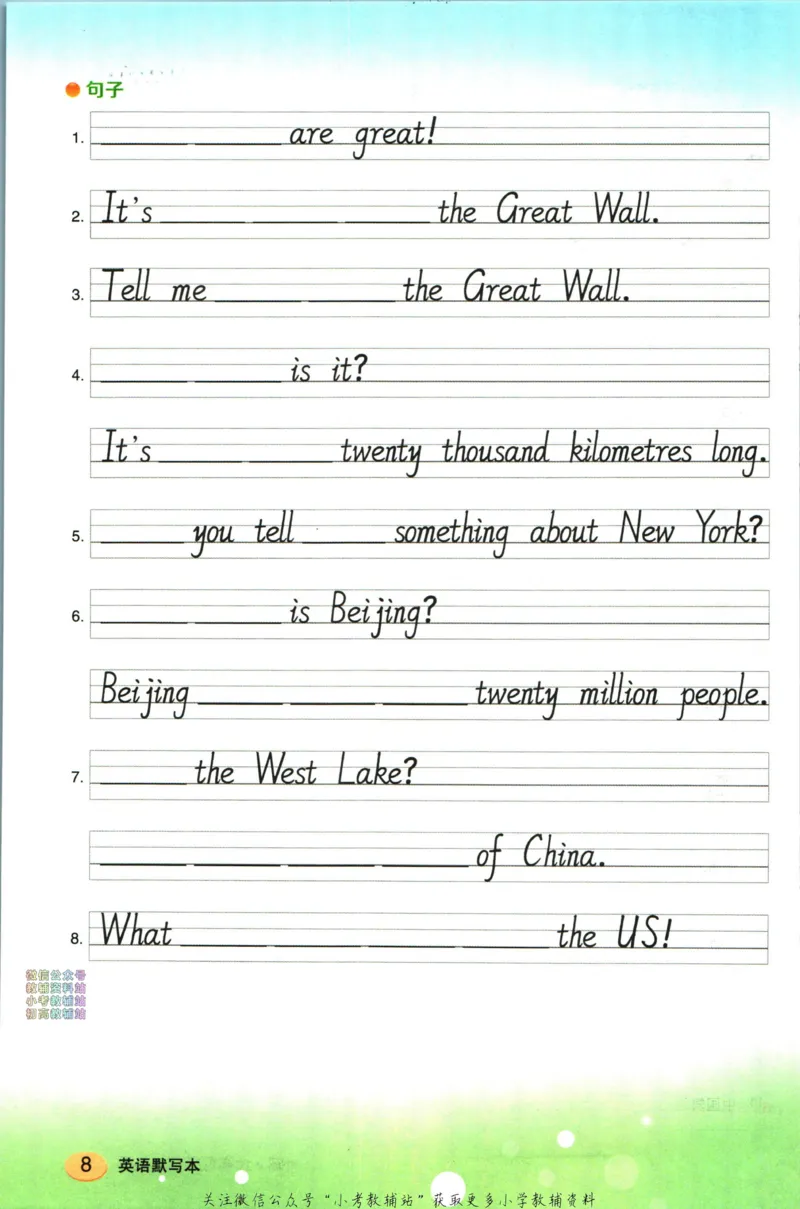 句子
1. ______ ______ are great!
2. It's ______ ______ ______ the Great Wall.
3. Tell me ______ ______ the Great Wall.
4. ______ ______ is it?
It's ______ ______ twenty thousand kilometres long.
5. ______ you tell ______ something about New York?
6. ______ ______ is Beijing?
Beijing ______ ______ ______ twenty million people.
7. ______ the West Lake?
______ ______ ______ ______ of China.
8. What ______ ______ ______ ______ the US!
微信公众号
教辅资料站
小考教辅站
初高教辅站
8 英语默写本
关注微信公众号“小考教辅站”获取更多小学教辅资料